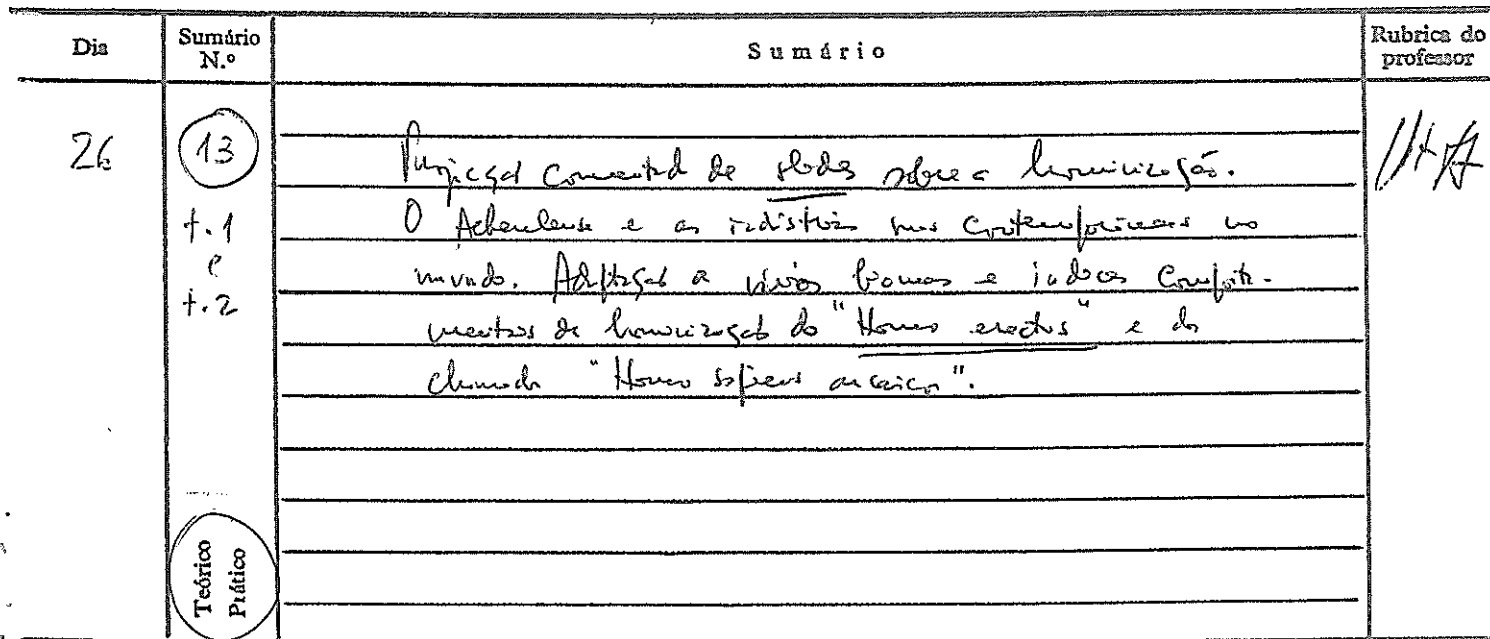 Dia
Sumário N.º
Sumário
Rubrica do professor
26
13
t.1
e
t.2
Projecção comentada de slides sobre a hominização.
O Acheulense e as indústrias suas contemporâneas no
mundo. Adaptação a vários biomas e comporta-
mentos de hominização do "Homo erectus" e do
chamado "Homo sapiens arcaico".
Teórico
Prático